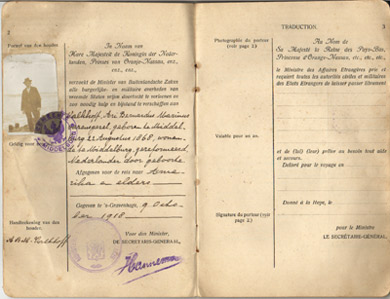 2
Portret van den houder.
Geldig voor
Handteekening van den houder.
A.B.M. Kerkhoff
In Naam van
Hare Majesteit de Koningin der Nederlanden, Prinses van Oranje-Nassau, enz., enz., enz.,
verzoekt de Minister van Buitenlandsche Zaken
alle burgerlijke- en militaire overheden van
vreemde Staten vrijen doortocht te verleenen en
van noodig hulp en bijstand te verschaffen aan
Ari Bernardus Marinus
geboren te Middelburg
Augustus 1868, wonende
te Middelburg, gereformeerd
Nederlander door geboorte
Afgegeven voor de reis naar Amerika en elders
Gegeven te 's-Gravenhage, 9 October 1918
Voor den Minister,
DE SECRETARIS-GENERAAL,
Hannema
Photographie du porteur
(voir page 2.)
Valable pour un an.
Signature du porteur (voir page 2.)
TRADUCTION.
3
Au Nom de
Sa Majesté la Reine des Pays-Bas,
Princesse d'Orange-Nassau, etc., etc., etc.,
le Ministre des Affaires Étrangères prie et
requiert toutes les autorités civiles et militaires
des États Étrangers de laisser passer librement
et de (lui) (leur) prêter au besoin tout aide
et secours.
Délivré pour le voyage en
Donné à la Haye, le
pour le Ministre
LE SECRÉTAIRE-GÉNÉRAL,